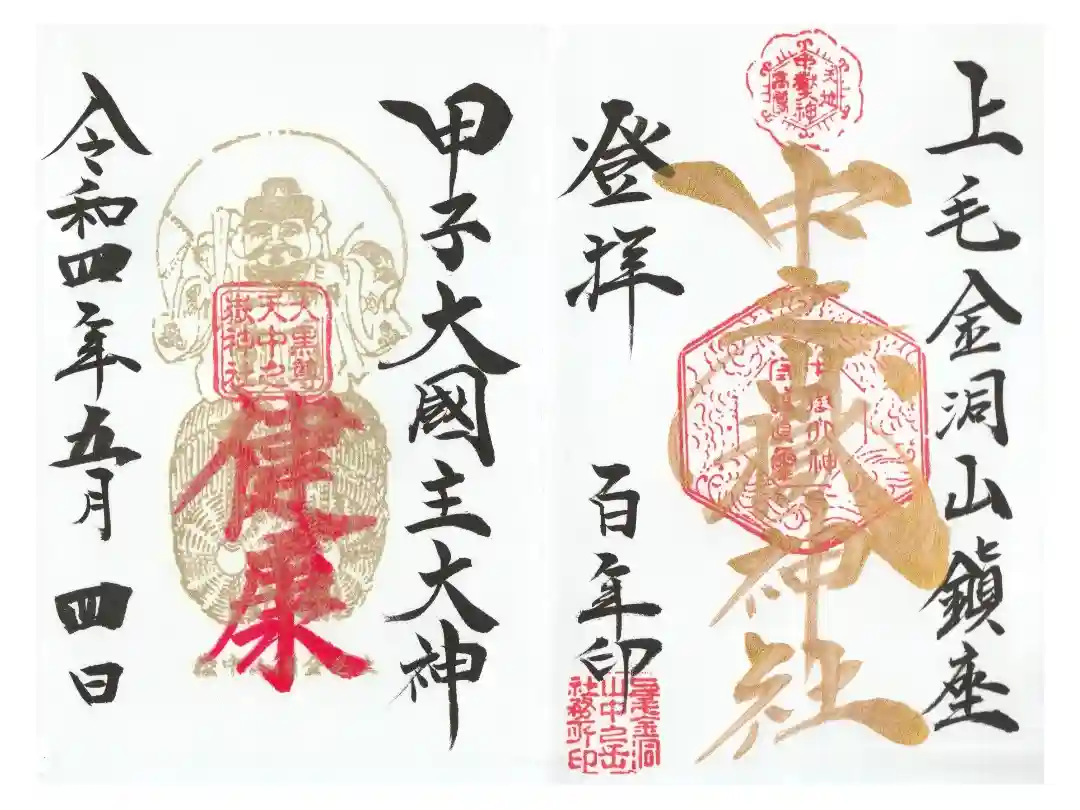 上毛金洞山鎮座
中之嶽神社
登拝
百年印
上毛金洞
山中之岳
社務所印
甲子大國主大神
大黒尊
天中之
嶽神社
健康
令和四年五月四日